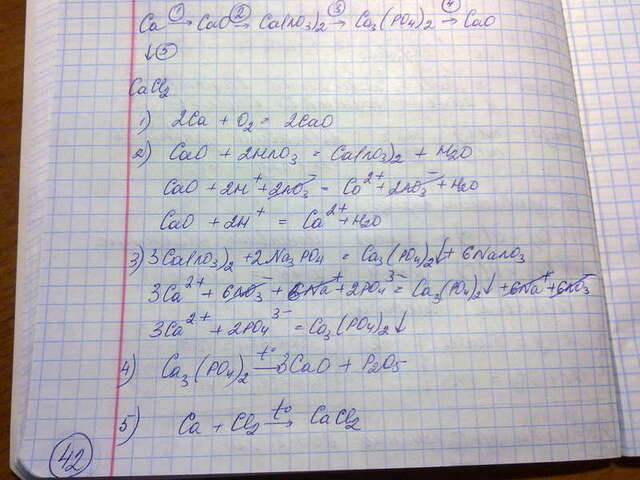 Ca ①→ CaO ②→ Ca(NO₃)₂ ③→ Ca₃(PO₄)₂ ④→ CaO
↓⑤
CaCl₂
1) 2Ca + O₂ = 2CaO
2) CaO + 2HNO₃ = Ca(NO₃)₂ + H₂O
CaO + 2H⁺ + 2NO₃⁻ = Ca²⁺ + 2NO₃⁻ + H₂O
CaO + 2H⁺ = Ca²⁺ + H₂O
3) 3Ca(NO₃)₂ + 2Na₃PO₄ = Ca₃(PO₄)₂↓ + 6NaNO₃
3Ca²⁺ + 6NO₃⁻ + 6Na⁺ + 2PO₄³⁻ = Ca₃(PO₄)₂↓ + 6Na⁺ + 6NO₃⁻
3Ca²⁺ + 2PO₄³⁻ = Ca₃(PO₄)₂↓
4) Ca₃(PO₄)₂ t°→ 3CaO + P₂O₅
5) Ca + Cl₂ t°→ CaCl₂
42